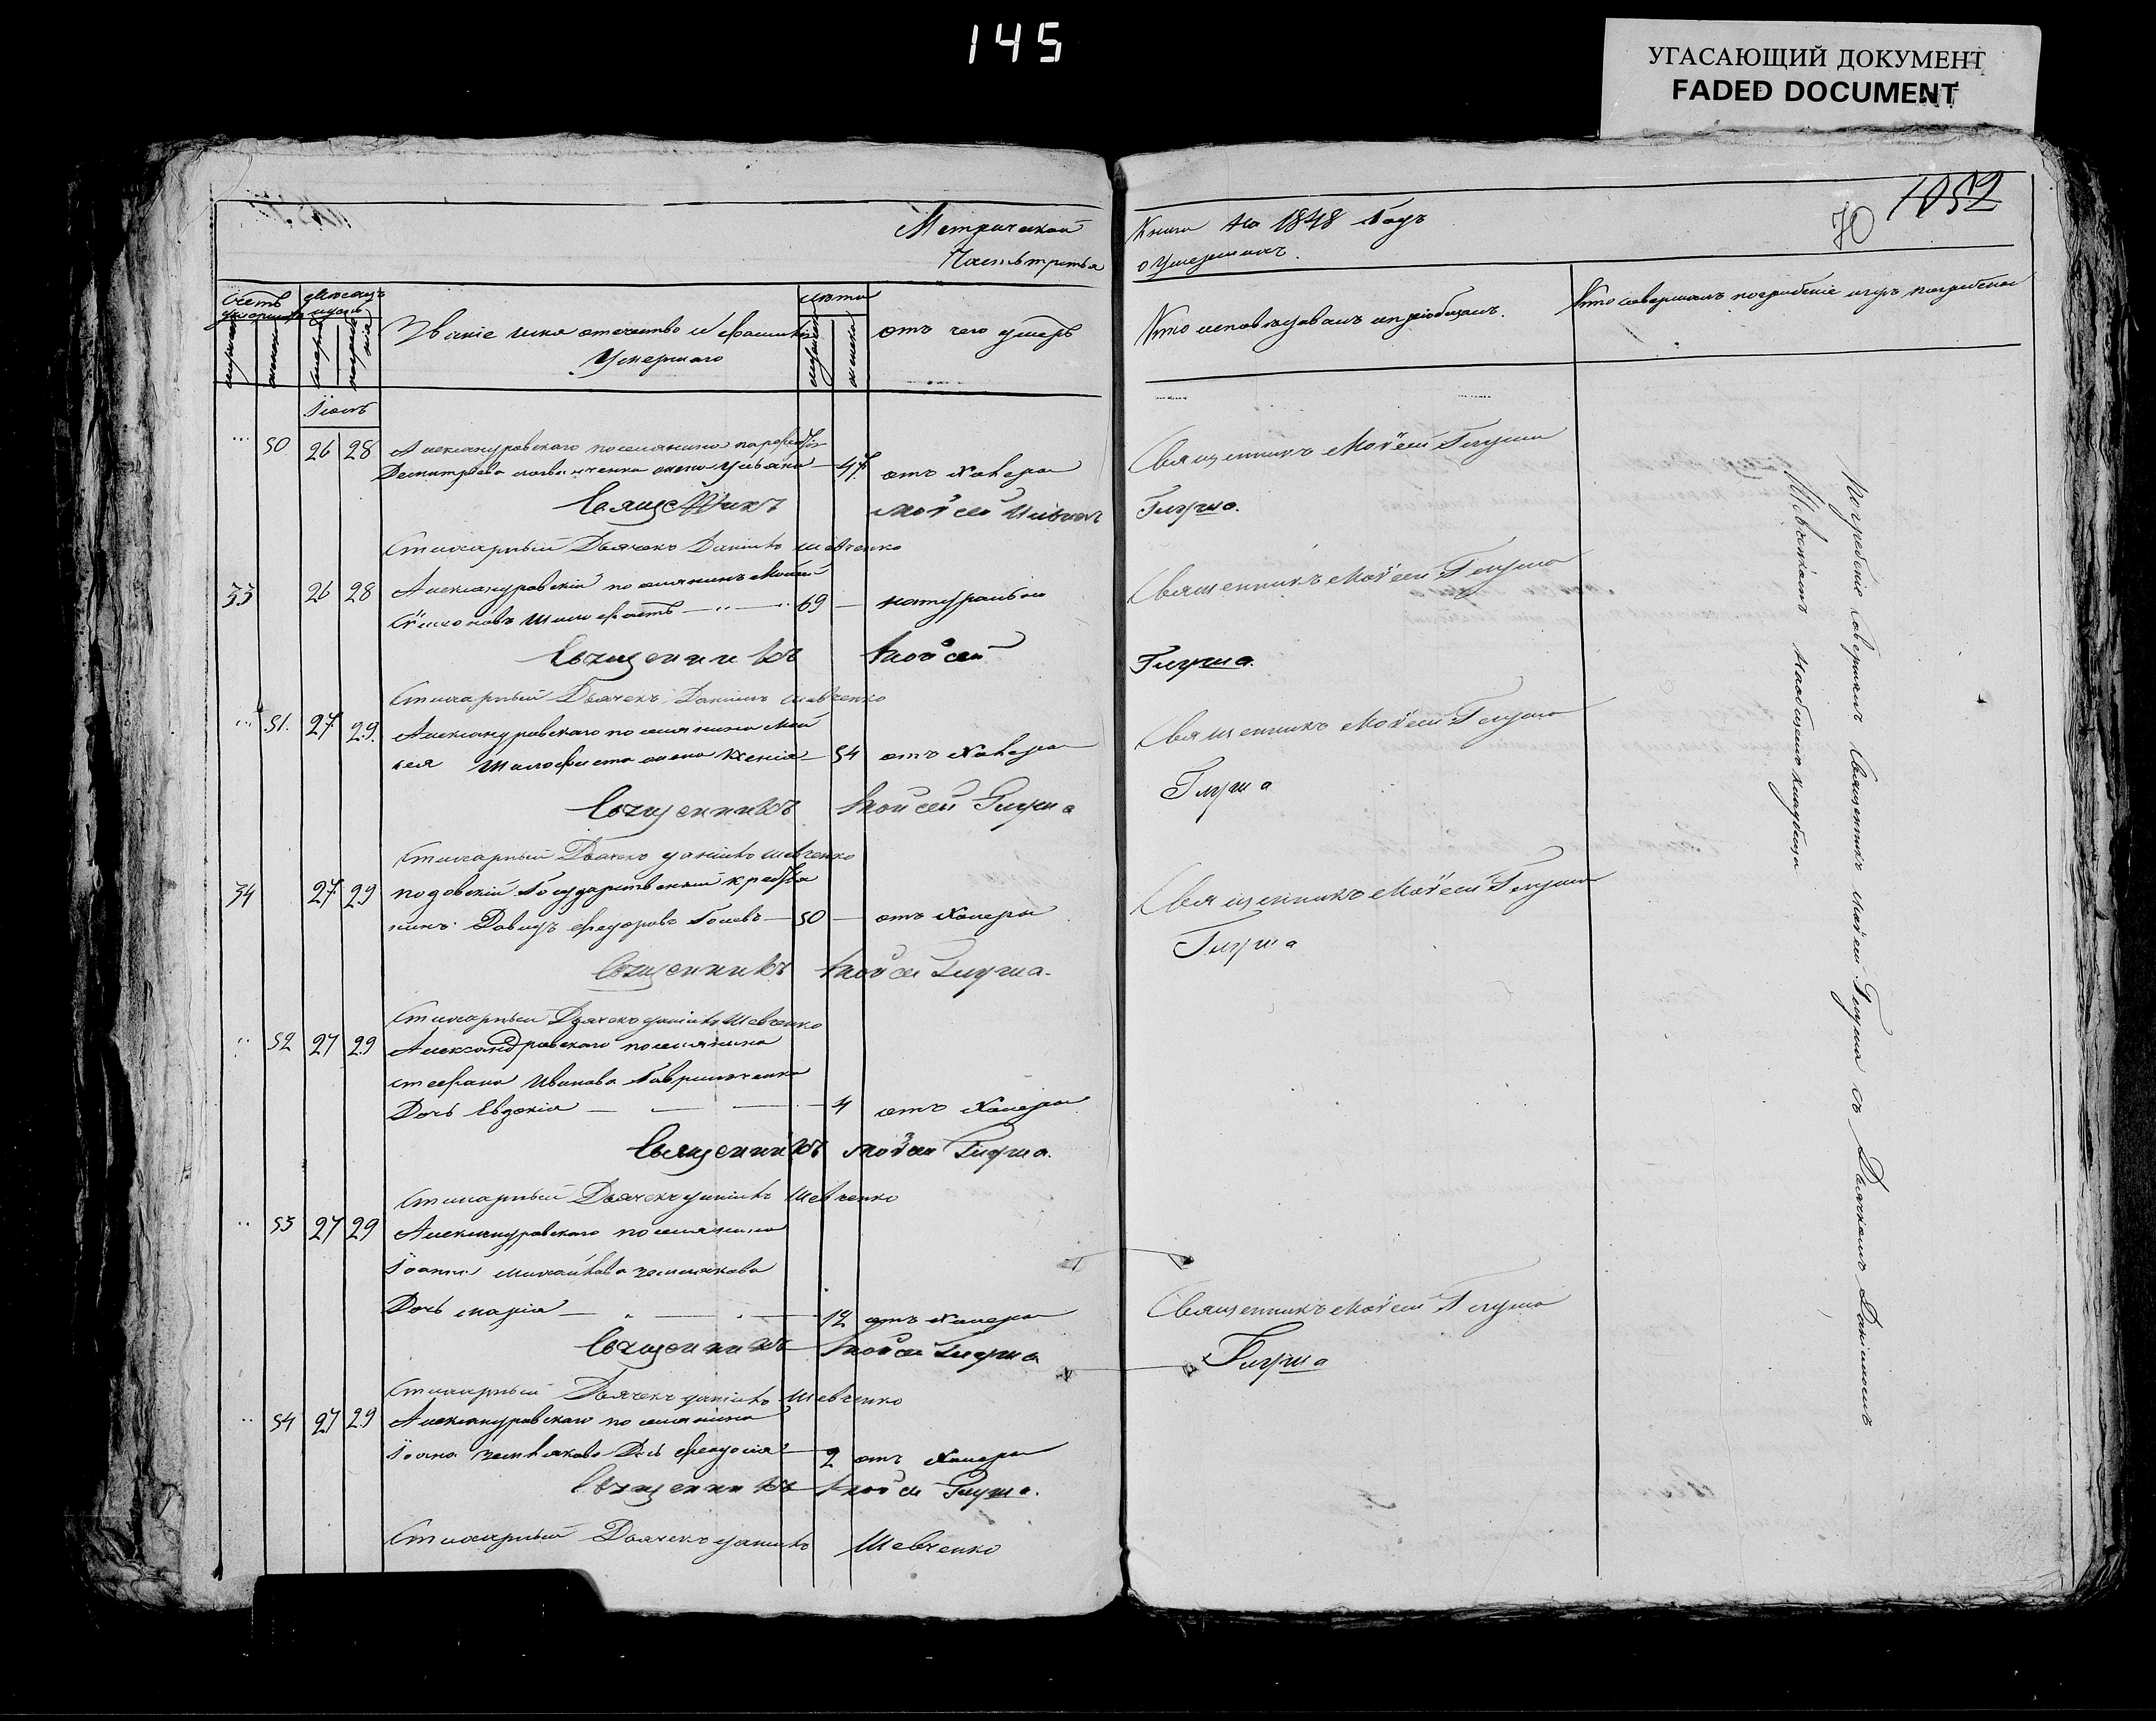 145
УГАСАЮЩИЙ ДОКУМЕНТ
FADED DOCUMENT
1052
70
Метрической
Часть третья
Книги на 1848 Годъ
о умершихъ.
Счетъ умершихъ
Мѣсяцъ и день
Званіе имя отечество и фамилія
Умершаго
Лѣта
отъ чего умеръ
Кто исповѣдувалъ и пріобщалъ.
Кто совершалъ погребеніе и гдѣ погребены
Іюль
50 26 28 Александровскаго поселянина
Дмитріева жена Ульяна 47 отъ холеры
Священникъ Моѵсей Глуша
Священникъ Моѵсей
Глуша.
Стихарный Дьячекъ Даніилъ Шевченко
33 26 28 Александровскій поселянинъ Моисей
69 натурально
Священникъ Моѵсей Глуша
Священникъ Моѵсей
Глуша.
Стихарный Дьячекъ Даніилъ Шевченко
51. 27 29. Александровскаго поселянина Мои
сея жена Ксенія 54 отъ холеры
Священникъ Моѵсей Глуша
Священникъ Моѵсей Глуша
Глуша
Стихарный Дьячекъ Даніилъ Шевченко
34 27 29 Государственный крестья
нинъ Давидъ Федоровъ 50 отъ холеры
Священникъ Моѵсей Глуша
Священникъ Моѵсей Глуша.
Глуша
Стихарный Дьячекъ Даніилъ Шевченко
52 27 29 Александровскаго поселянина
Стефана Иванова Гавриличенка
Дочь Евдокія 4 отъ холеры
Священникъ Моѵсей Глуша.
Стихарный Дьячекъ Даніилъ Шевченко
53 27 29 Александровскаго поселянина
Іоанна Михайлова Землякова
Дочь Марія 12 отъ холеры
Священникъ Моѵсей Глуша
Священникъ Моѵсей Глуша
Глуша
Стихарный Дьячекъ Даніилъ Шевченко
54 27 29 Александровскаго поселянина
Іоана Землякова Дочь Феодосія 2 отъ холеры
Священникъ Моѵсей Глуша.
Стихарный Дьячекъ Даніилъ Шевченко
Погребеніе Совершалъ Священникъ Моѵсей Глуша съ Дьячкомъ Даніиломъ
Шевченкомъ на общемъ кладбищѣ